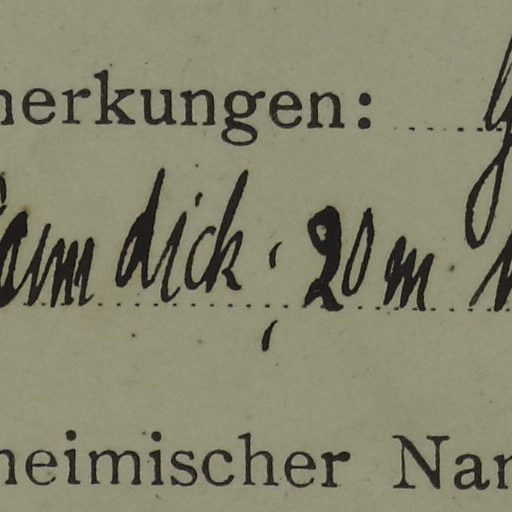 merkungen:
cm dick; 20 m
heimischer Nam